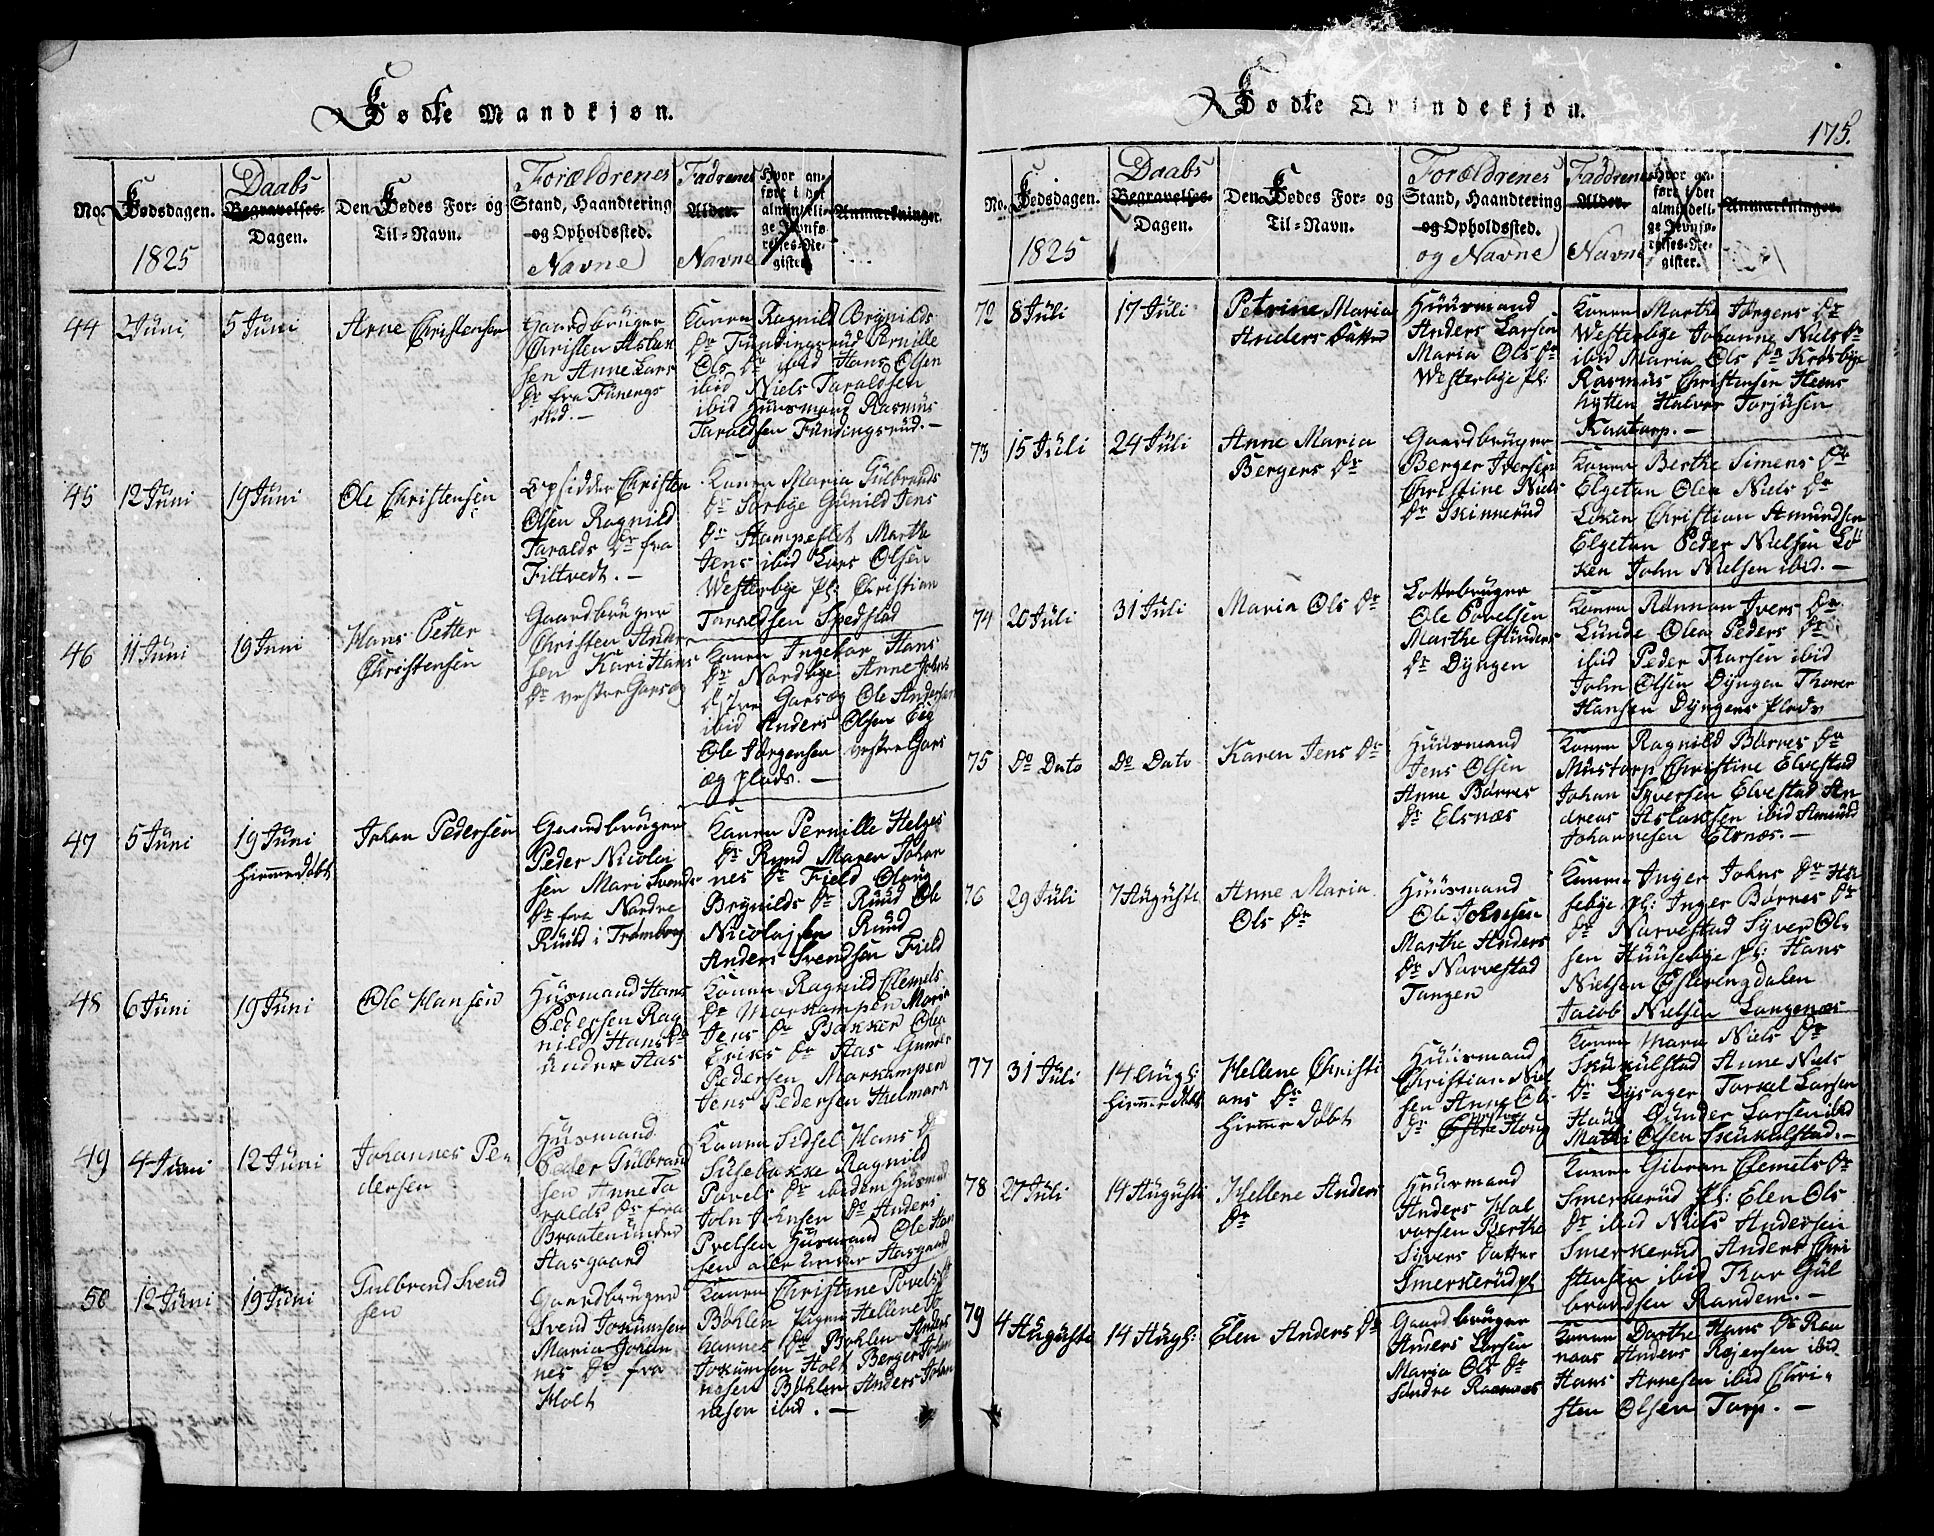 Fødte Mandkjøn.
No.
Fødsdagen.
1825
Daabs
Begravelses-
Dagen.
Den Fødes For- og
Til-Navn.
Forældrenes
Stand, Haandtering
og Opholdssted.
Navne
Faddrenes
Alder.
Navne
Hvor an-
føre i det
almindeli-
ge Jevnfø-
relses-Re-
gister.
Anmærkninger.
44
2 Juni
5 Juni
Arne Christensen
Gaardbruger
Christen Aslak
sen Anne Lars
Dr fra Fünings
rud. —
Konen Ragnild Brynilds
Dr Fundingsrud Pernille
Ols Dr ibid Hans Olsen
ibid Niels Taraldsen
ibid Huusmand Rasmus
Taraldsen Fündingsrud. —
45
12 Juni
19 Juni
Ole Christensen
Opsidder Christen
Olsen Ragnild
Taralds Dr fra
Fittvedt. —
Konen Maria Gulbrands
Dr Sorbye Gunild Jens
Dr Stampeflet Marthe
Jens ibid Lars Olsen
Westerbye Pl: Christian
Taraldsen Spedstad
46
11 Juni
19 Juni
Hans Petter
Christensen
Gaardbruger
Christen Ander
sen Kari Hans
Dr vestre Garsøg
Konen Ingebor Hans
Dr Nordbye Anne Johns
Dr Garsøg Ole Andersen
ibid Anders Olsen Eig
Ole Jørgensen vestre Gars
øg plads. —
47
5 Juni
19 Juni
Hiemmedøbt
Johan Pedersen
Gaardbruger
Peder Nicolai
sen Mari Svends
Dr fra Nordre
Ruud i Trømborg
Konen Pernille Helges
Dr Ruud Maren Johan
nes Dr Field Oloug
Brynilds Dr Ruud Ole
Nicolajsen Ruud
Anders Svendsen Field
48
6 Juni
19 Juni
Ole Hansen
Husmand Hans
Pedersen Rag
nild Hans Dr
under Aas
Konen Ragnild Clemets
Dr Morskampen Maria
Jens Dr Bakker Olea
Eriks Dr Aas Gunder
Pedersen Morskampen
Jens Pedersen Hielmark
49
4 Juni
12 Juni
Johannes Pe
dersen
Husmand
Peder Gulbrand
sen Anne Ta
ralds Dr fra
Braaten under
Aasgaard
Konen Sidsel Hans Dr
Susebakke Ragnild
Povels Dr ibidem Husmand
John Johnsen Do Anders
Povelsen Husmand Ole Han
sen alle under Aasgaard
50
12 Juni
19 Juni
Gulbrand Svend
sen
Gaardbruger
Svend Jokumsen
Maria Johan
nes Dr fra
Holt
Konen Christine Povels Dr
Bøhlen Pigen Hellene Jo
hannes Dr Bøhlen Anders
Jokumsen Holt Berger Johan
nesen Bøhlen Anders Johan
nesen ibid. —
Fødte Qvindekjøn.
175.
No.
Fødsdagen.
1825
Daabs
Begravelses-
Dagen.
Den Fødes For- og
Til-Navn.
Forældrenes
Stand, Haandtering
og Opholdssted.
og Navne
Faddrenes
Alder.
Navne
Hvor an-
føre i det
almindeli-
ge Jevnfø-
relses-Re-
gister.
Anmærkninger.
72
8 Juli
17 Juli
Petrine Maria
Anders Datter
Huusmand
Anders Larsen
Maria Ols Dr
Westerbye Pl:
Konen Marthe Jørgens Dr
Westerbye Johanne Niels Dr
ibid Maria Ols Dr Krosbye
Rasmus Christensen Hems
hytten Halvor Torjusen
Kaatorp. —
73
15 Juli
24 Juli
Anne Maria
Bergers Dr
Gaardbruger
Berger Iversen
Christine Niels
Dr Skinnerud
Konen Berthe Simens Dr
Elgetun Olea Niels Dr
Løken Christian Amundsen
Elgetun Peder Nielsen Lø
ken John Nielsen ibid. —
74
20 Juli
31 Juli
Maria Ols Dr
Lottebruger
Ole Povelsen
Marthe Gunders
Dr Dyngen
Konen Rønnou Ivers Dr
Lunde Olea Peders Dr
ibid Peder Thorsen ibid
John Olsen Dyngen Thorer
Hansen Dyngens Plads
75
Do Dato
Do Dato
Karen Jens Dr
Huusmand
Jens Olsen
Anne Børres
Dr Elsnæs
Konen Ragnild Børres Dr
Mustorp Christine Elvestad
Johan Syversen Elvestad An
dreas Aslaksen ibid Amund
Johannesen Elsnæs. —
76
29 Juli
7 Augusti
Anne Maria
Ols Dr
Huusmand
Ole Johnsen
Marthe Anders
Dr Narvestad
Tangen
Konen Inger Johns Dr Hu
sebye Pl: Inger Børres Dr
Dr Narvestad Syver Ol-
sen Huusebye Pl: Hans
Nielsen Eslerengdalen
Jacob Nielsen Langenæs
77
31 Juli
14 Augs:
Hiemmedøbt
Hellene Christi
ans Dr
Hiemmedøbt
Huusmand
Christian Niel
sen Anne Ols
Dr Østre Houg
Konen Maria Niels Dr
Skukulstad Anne Niels
Dr Lysager Torkel Larsen
Houg Gunder Larsen ibid
Mathi Olsen Skukulstad. —
78
27 Juli
14 Augusti
Hellene Anders
Dr
Huusmand
Anders Hal
vorsen Berthe
Syvers Datter
Smerkerud Pl
Konen Gunnor Clemets Dr
Smerkerud Pl: Elen Ols
Dr ibid Niels Andersen
Smerkerud Anders Chri
stensen ibid Thor Gul
brandsen Randem. —
79
4 Augusti
14 Augs:
Elen Anders Dr
Gaardbruger
Anders Larsen
Maria Ols Dr
søndre Raanaas
Konen Dorthe Hans Dr Raa
naas Anders Rejersen ibid
Hans Arnesen ibid Chri-
sten Olsen Torp. —